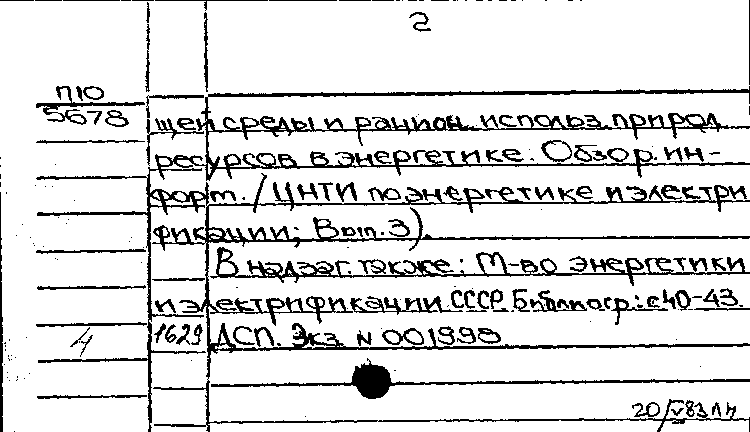 2
П10
5678
щей среды и рацион. использ. природ.
ресурсов в энергетике. Обзор. ин-
форм. / ЦНТИ по энергетике и электри
фикации; Вып. 3).
В надзаг. также: М-во энергетики
и электрификации СССР. Библиогр.: с 40-43.
4 1629 ДСП. Экз. N 001998
20/V 83